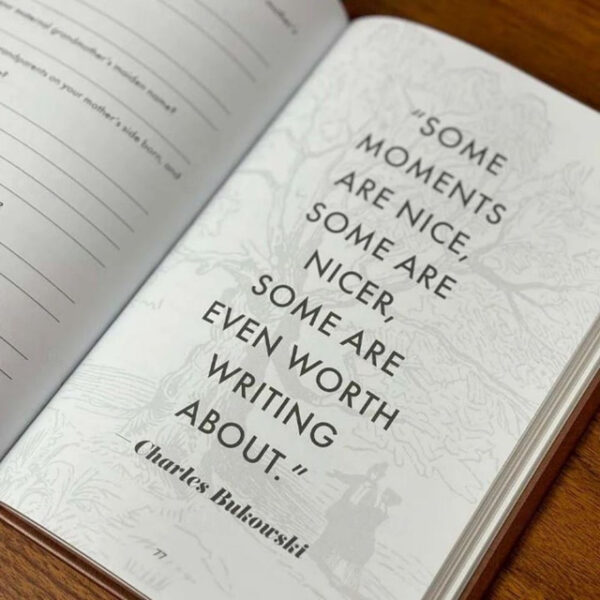 mother's
maternal grandmother's maiden name?
grandparents on your mother's side born, and
"SOME
MOMENTS
ARE NICE,
SOME ARE
NICER,
SOME ARE
EVEN WORTH
WRITING
ABOUT."
— Charles Bukowski
77